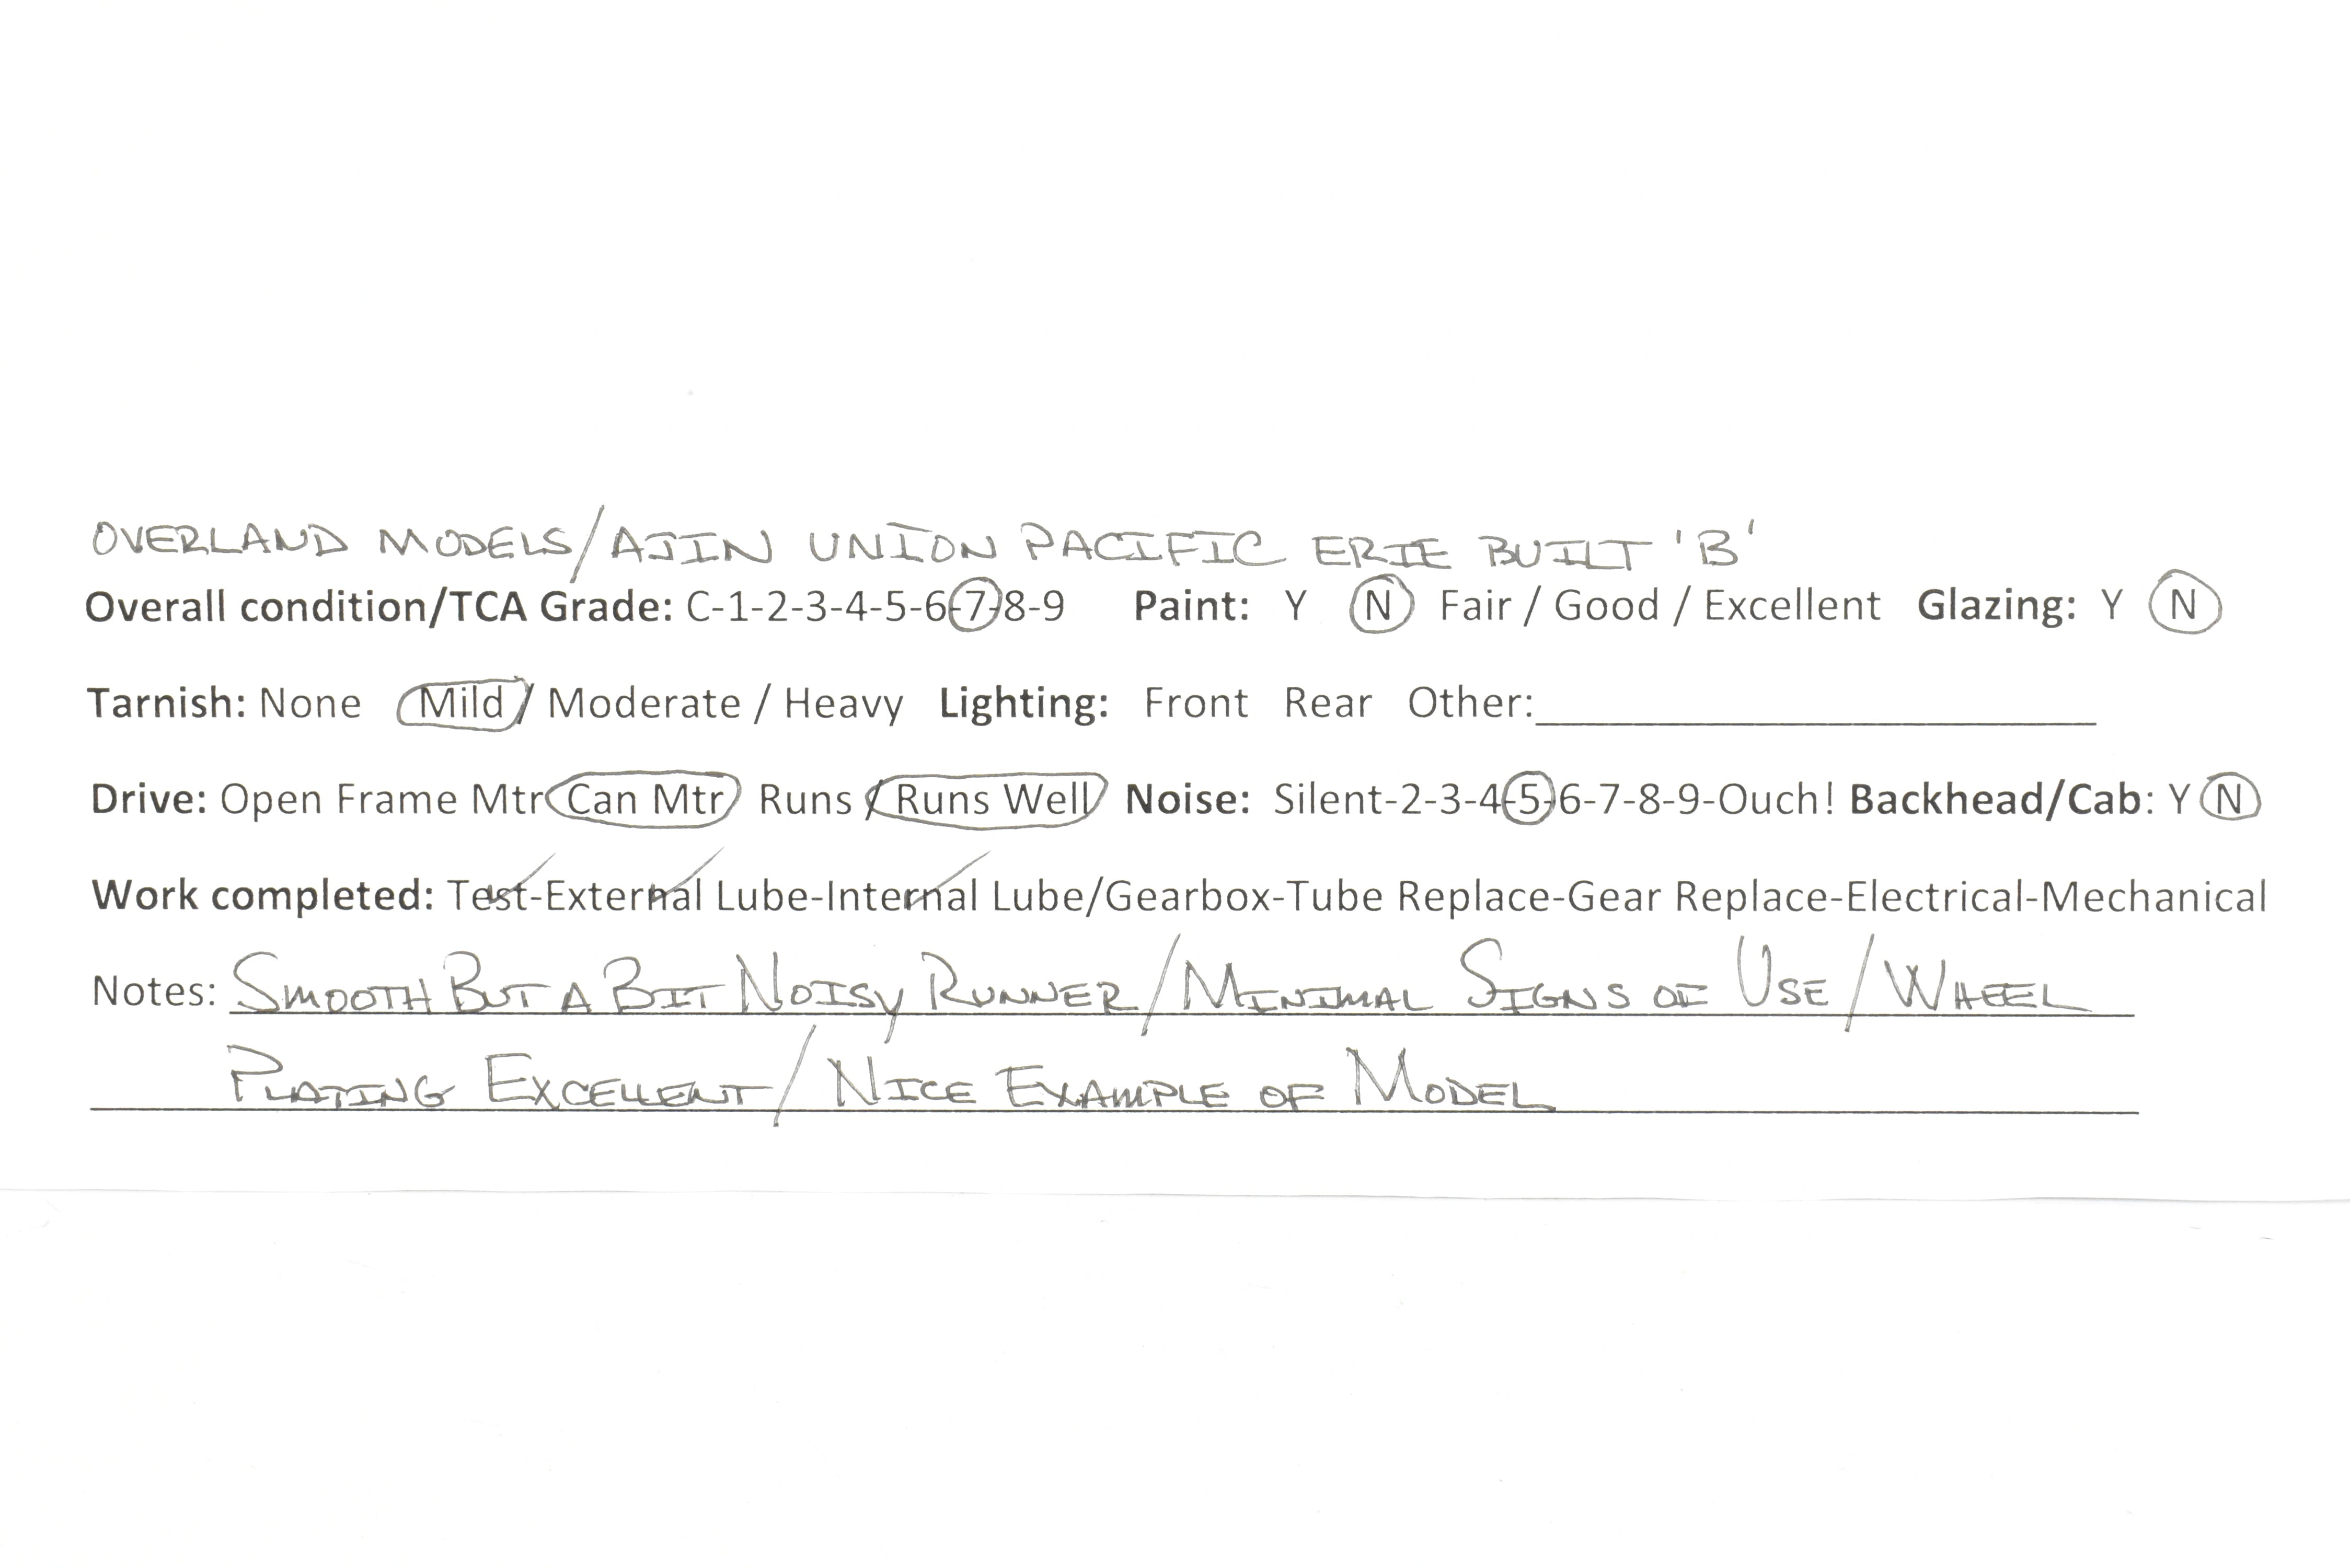 OVERLAND MODELS/AJIN UNION PACIFIC ERIE BUILT 'B'
Overall condition/TCA Grade: C-1-2-3-4-5-6-7-8-9 Paint: Y N Fair / Good / Excellent Glazing: Y N
Tarnish: None Mild / Moderate / Heavy Lighting: Front Rear Other:
Drive: Open Frame Mtr Can Mtr Runs / Runs Well Noise: Silent-2-3-4-5-6-7-8-9-Ouch! Backhead/Cab: Y N
Work completed: Test-External Lube-Internal Lube/Gearbox-Tube Replace-Gear Replace-Electrical-Mechanical
Notes: SMOOTH BUT A BIT NOISY RUNNER/MINIMAL SIGNS OF USE/WHEEL
PLATING EXCELLENT/NICE EXAMPLE OF MODEL